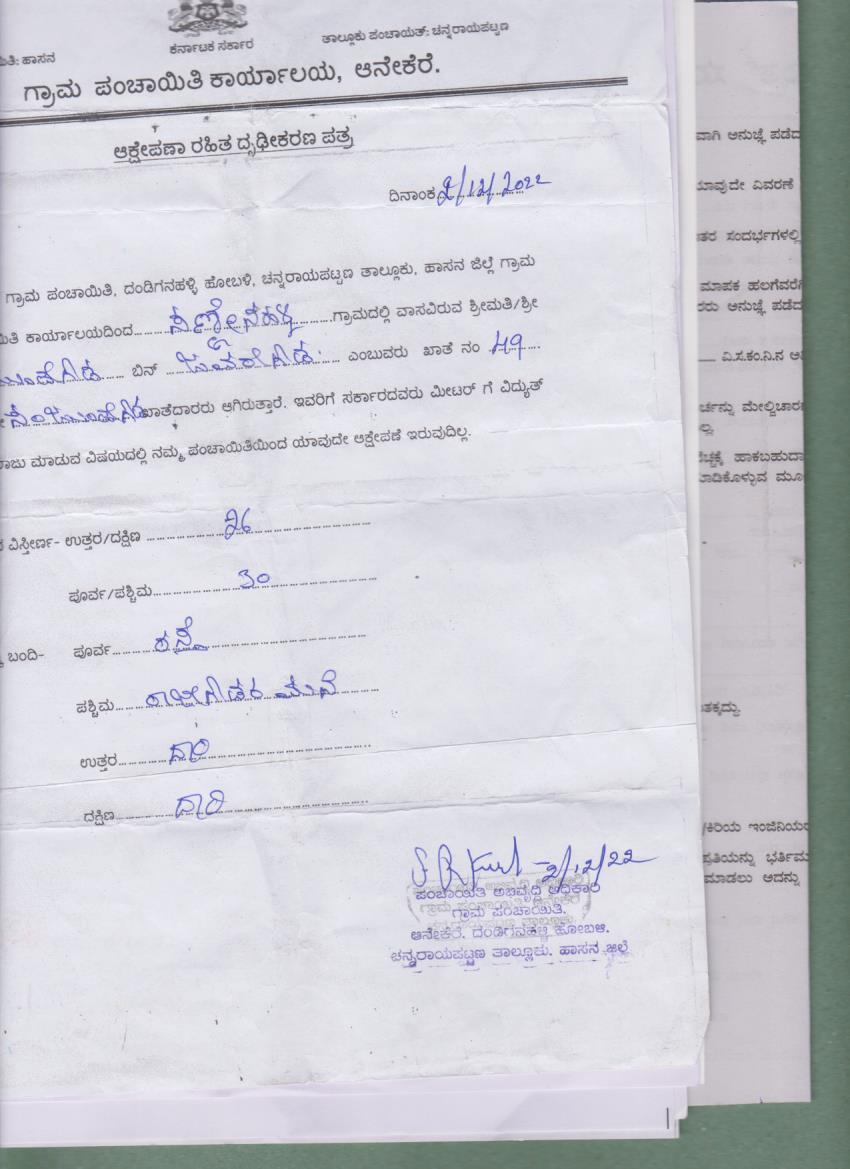 ಕರ್ನಾಟಕ ಸರ್ಕಾರ
ತಾಲ್ಲೂಕು ಪಂಚಾಯತ್: ಚನ್ನರಾಯಪಟ್ಟಣ
ಮಿತಿ: ಹಾಸನ
ಗ್ರಾಮ ಪಂಚಾಯಿತಿ ಕಾರ್ಯಾಲಯ, ಆನೇಕೆರೆ.
ಆಕ್ಷೇಪಣಾ ರಹಿತ ದೃಢೀಕರಣ ಪತ್ರ
ದಿನಾಂಕ 2/12/2022
ಗ್ರಾಮ ಪಂಚಾಯಿತಿ, ದಂಡಿಗನಹಳ್ಳಿ ಹೋಬಳಿ, ಚನ್ನರಾಯಪಟ್ಟಣ ತಾಲ್ಲೂಕು, ಹಾಸನ ಜಿಲ್ಲೆ ಗ್ರಾಮ
ಯಿತಿ ಕಾರ್ಯಾಲಯದಿಂದ ಗ್ರಾಮದಲ್ಲಿ ವಾಸವಿರುವ ಶ್ರೀಮತಿ/ಶ್ರೀ
ಬಿನ್ ಎಂಬುವರು ಖಾತೆ ನಂ
ಖಾತೆದಾರರು ಆಗಿರುತ್ತಾರೆ. ಇವರಿಗೆ ಸರ್ಕಾರದವರು ಮೀಟರ್ ಗೆ ವಿದ್ಯುತ್
ರಾಜು ಮಾಡುವ ವಿಷಯದಲ್ಲಿ ನಮ್ಮ ಪಂಚಾಯಿತಿಯಿಂದ ಯಾವುದೇ ಆಕ್ಷೇಪಣೆ ಇರುವುದಿಲ್ಲ.
ವಿಸ್ತೀರ್ಣ- ಉತ್ತರ/ದಕ್ಷಿಣ ೨೬
ಪೂರ್ವ/ಪಶ್ಚಿಮ ೩೦
ಬಂದಿ- ಪೂರ್ವ ರಸ್ತೆ
ಪಶ್ಚಿಮ ಮನೆ
ಉತ್ತರ ದಾರಿ
ದಕ್ಷಿಣ ದಾರಿ
2/12/22
ಪಂಚಾಯಿತಿ ಅಭಿವೃದ್ಧಿ ಅಧಿಕಾರಿ
ಗ್ರಾಮ ಪಂಚಾಯಿತಿ.
ಆನೇಕೆರೆ. ದಂಡಿಗನಹಳ್ಳಿ ಹೋಬಳಿ.
ಚನ್ನರಾಯಪಟ್ಟಣ ತಾಲ್ಲೂಕು. ಹಾಸನ ಜಿಲ್ಲೆ
ವಾಗಿ ಅನುಚ್ಛೆ ಪಡೆದ
ಯಾವುದೇ ವಿವರಣೆ
ತರ ಸಂದರ್ಭಗಳಲ್ಲಿ
ಮಾಪಕ ಹಲಗೆವರೆಗಿ
ರರು ಅನುಚ್ಛೆ ಪಡೆದ
ವಿ.ಸ.ಕಂ.ನಿ.ನ ಅ
ರ್ಚನ್ನು ಮೇಲ್ವಿಚಾರಣ
ಲ್ಲ.
ಚ್ಚಕ್ಕೆ ಹಾಕಬಹುದಾ
ಮಾಡಿಕೊಳ್ಳುವ ಮೂ
ತಕ್ಕದ್ದು.
/ಕಿರಿಯ ಇಂಜಿನಿಯರ
ಪ್ರತಿಯನ್ನು ಭರ್ತಿಮ
ಮಾಡಲು ಅದನ್ನು